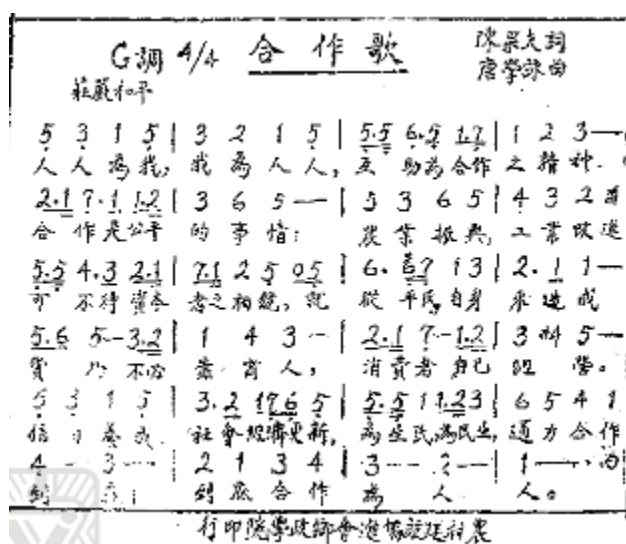 G調 4/4 合作歌 陳果夫詞
莊嚴和平 唐學詠曲
5 3 1 5 | 3 2 1 5 | 5.5 6.5 1.7 | 1 2 3—
人人為我，我為人人，互助為合作之精神.
2.1 7.1 1.2 | 3 6 5 — | 5 3 6 5 | 4 3 2
合作是公平的事情； 農業振興，工業改進
5.5 4.3 2.1 | 7.1 2 5 05 | 6. 67 13 | 2. 1 1—
可不待資本者之相競，就從平民自身來造成
5.6 5-3.2 | 1 4 3 - | 2.1 7-1.2 | 3 #4 5—
貨乃不必靠商人， 消費者自己經營。
5 3 1 5 | 3.2 176 5 | 5.5 1 1.23 | 6 5 4 1
信義成 社會經濟更新，為生民，為民生，通力合作
4 - 3 -- | 2 1 3 4 | 3 --- 2 -- | 1 ——
到底； 到底合作為人人。
行印院學政鄉會進協設建村農